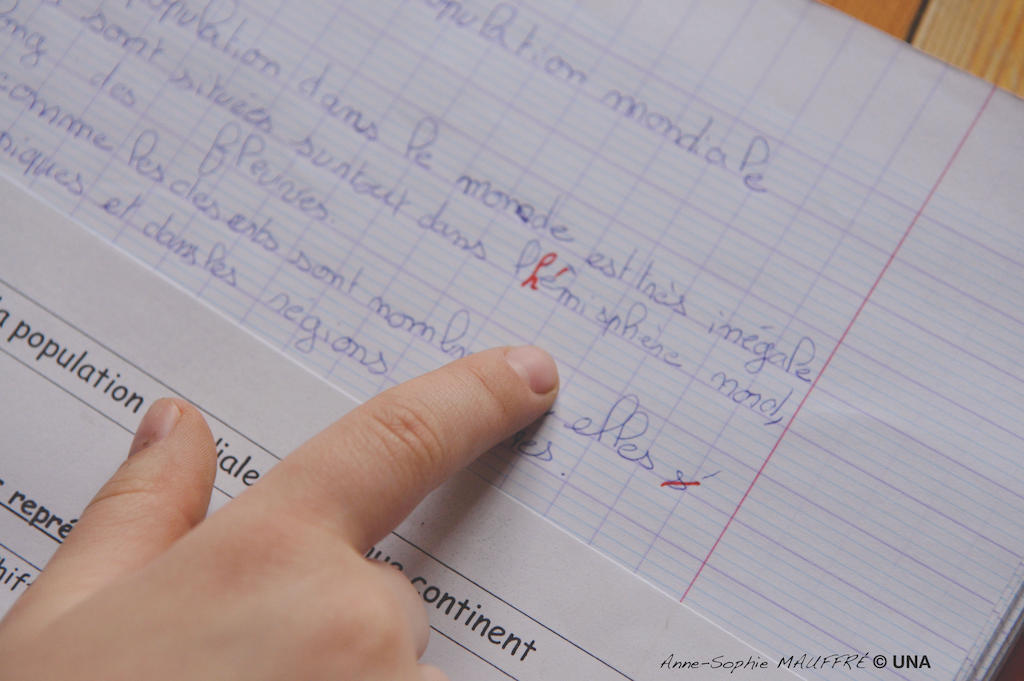 opulation mondiale
population dans le monde est très inégale
sont situées surtout dans l'hémisphère nord,
ong des fleuves.
comme les deserts sont nombr elles s'
niques et dans les regions es.
la population diale
repré ue continent
hiff
Anne-Sophie MAUFFRÉ © UNA